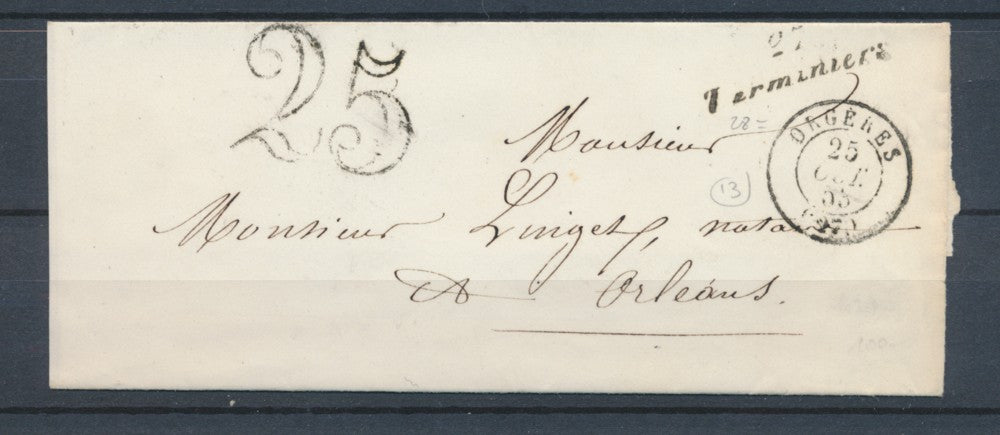 25
27
Terminiers
28=
ORGÈRES
25
OCT
53
(27)
13
Monsieur
Monsieur Linget, nota
à Orléans.
100